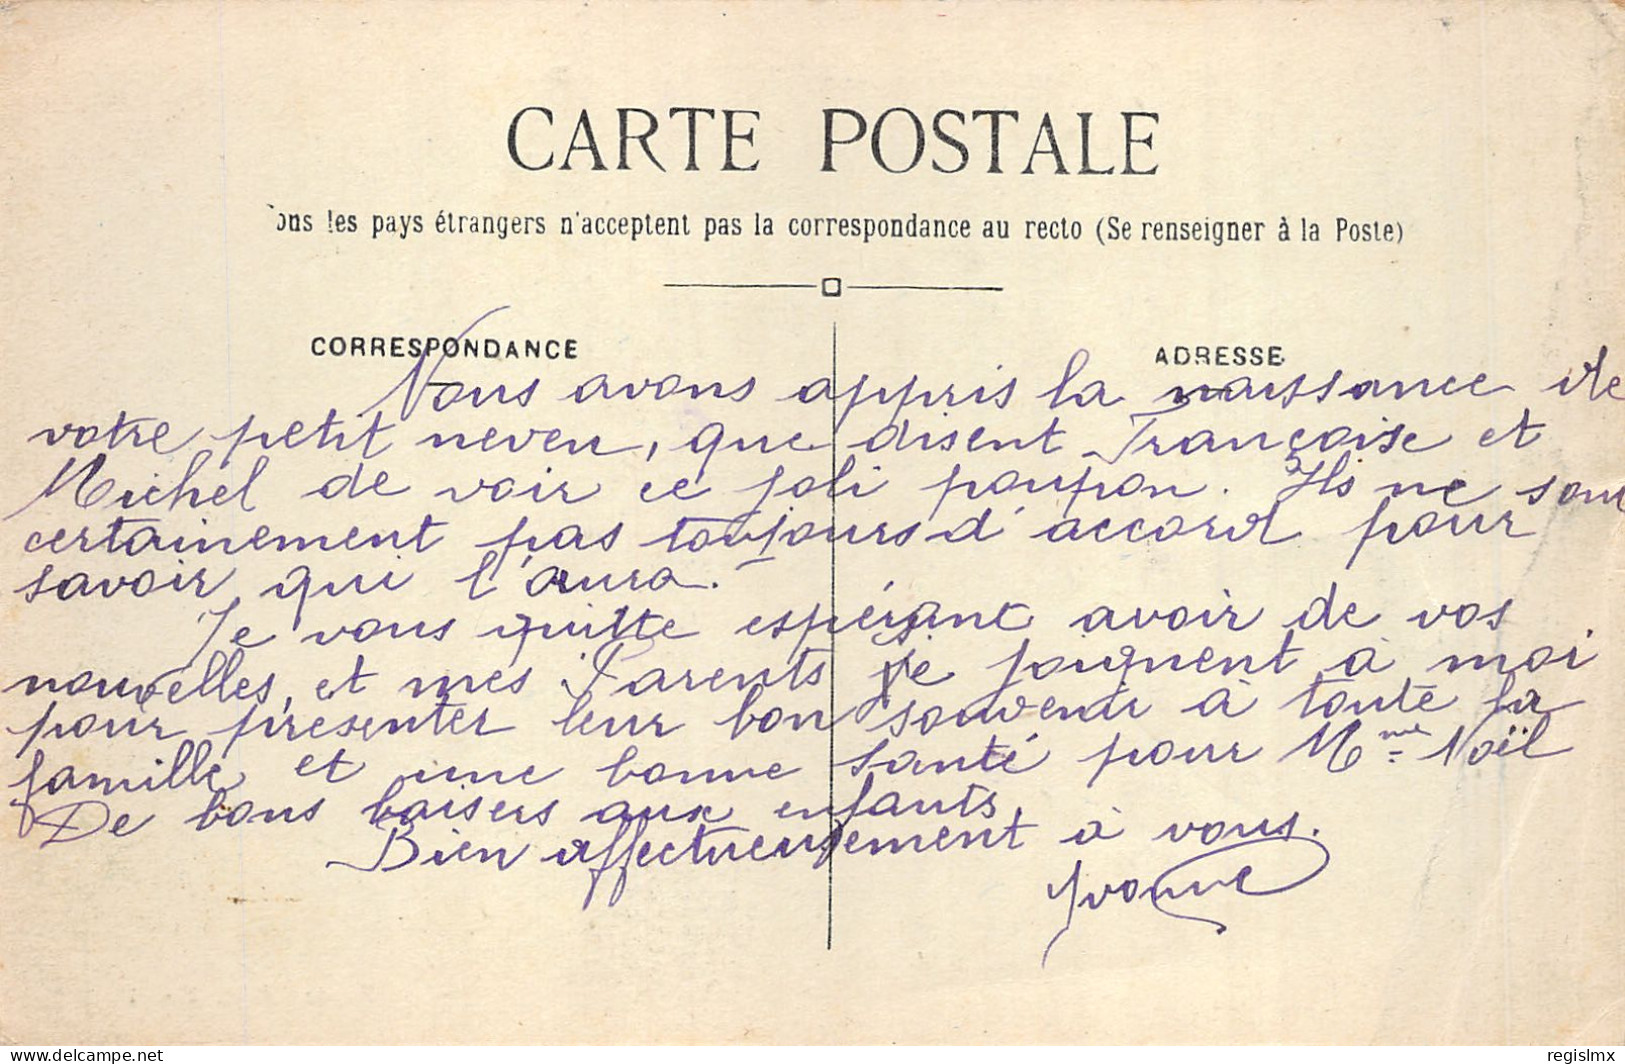 CARTE POSTALE
ons les pays étrangers n'acceptent pas la correspondance au recto (Se renseigner à la Poste)
CORRESPONDANCE
ADRESSE
Nous avons appris la naissance de
votre petit neveu, que disent Françoise et
Michel de voir ce joli poupon. Ils ne sont
certainement pas toujours d'accord pour
savoir qui l'aura.
Je vous quitte espérant avoir de vos
nouvelles, et mes Parents se joignent à moi
pour présenter leur bon souvenir à toute la
famille et une bonne santé pour Mme Noël
De bons baisers aux enfants,
Bien affectueusement à vous.
Yvonne
www.delcampe.net
regislmx